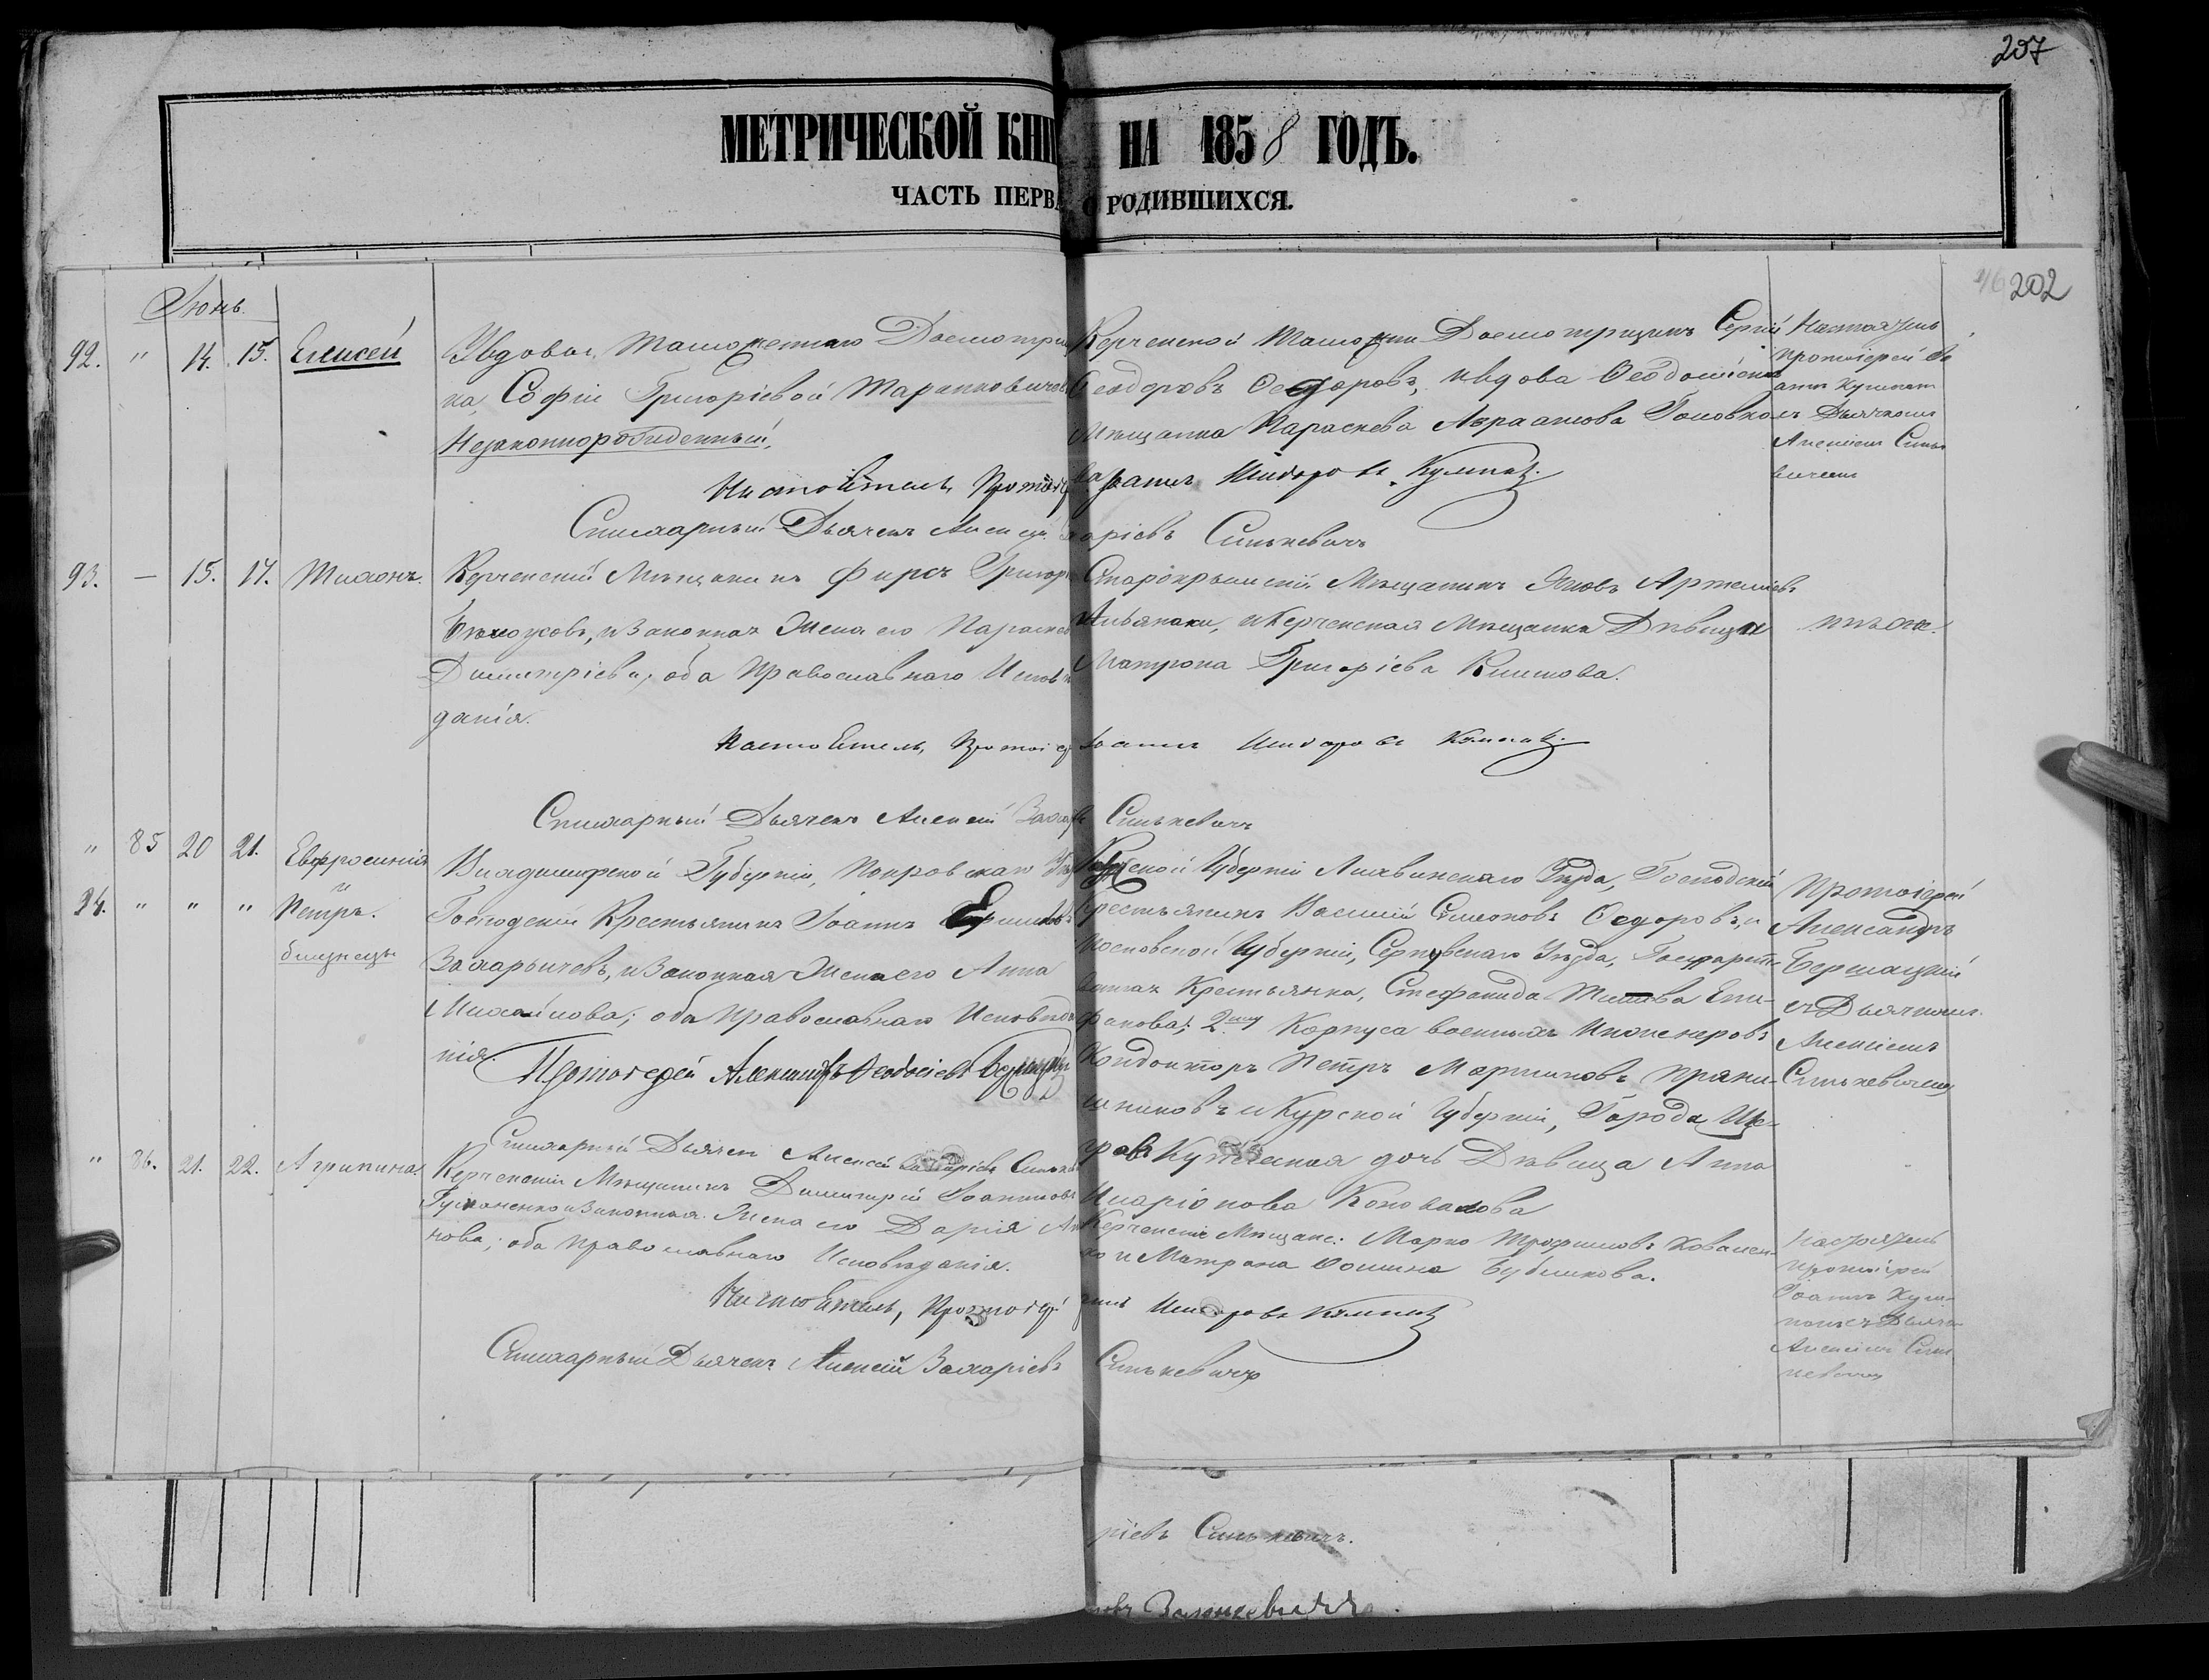 207
МЕТРИЧЕСКОЙ КНИ НА 1858 ГОДЪ.
ЧАСТЬ ПЕРВА О РОДИВШИХСЯ.
202
Іюнь.
92. " 14. 15. Елисей
У вдовы Таможеннаго Досмотрщи
ка, Софіи Григоріевой
Незаконнорожденный.
Керченской Таможни Досмотрщикъ Сергій
Ѳеодоровъ Ѳедоровъ, и вдова Ѳеодосійская
Мѣщанка Параскева Авраамова Головко
Настоятель
Протоіерей Іо
аннъ
съ Дьячкомъ
Алексіемъ Синь
кевичемъ
Настоятель, Протоіер Іоаннъ
Стихарный Дьячекъ Алексѣй Захаріевъ Синькевичъ
93. — 15. 17. Тихонъ.
Керченскій Мѣщанинъ Фирсъ Григор
и Законная Жена его Параскева
Димитріева; оба Православнаго Исповѣ
данія.
Старокрымскій Мѣщанинъ Яковъ Артеміевъ
и Керченская Мѣщанка Дѣвица
Матрона Григоріева Климова.
Настоятель, Протоіер Іоаннъ
Стихарный Дьячекъ Алексій Захарі Синькевичъ
" 85 20 21. Евфросинія
94. " " " и Петръ.
близнецы
Владимирской Губерніи, Покровскаго Уѣз
Господскій Крестьянинъ Іоаннъ
Захарычевъ, и Законная Жена его Анна
Михайлова; оба Православнаго Исповѣда
нія.
Губерніи Лихвинскаго Уѣзда, Господскій
Крестьянинъ Василій Симоновъ Ѳедоровъ, и
Московской Губерніи, Серпуховскаго Уѣзда, Государст-
венная Крестьянка, Стефанида Титова Епи-
фанова; 2. Корпуса военныхъ Инженеровъ
Кондокторъ Петръ Мартиновъ Пряни-
шниковъ и Курской Губерніи, Города Щи-
гровъ Купеческая дочь Дѣвица Анна
Иларіонова Коновалова
Протоіерей
Александръ
съ Дьячкомъ
Алексіемъ
Синькевичемъ
Протоіерей Александръ Ѳеодосіевъ
Стихарный Дьячекъ Алексѣй Захаріевъ Синькев
" 86. 21. 22. Агрипина.
Керченскій Мѣщанинъ Димитрій Іоанновъ
и Законная Жена его Дарія
нова; оба Православнаго Исповѣданія.
Керченскіе Мѣщане: Марко Трофимовъ Ковален-
ко и Матрона Ѳомина Бубликова.
Настоятель
Протоіерей
Іоаннъ
съ Дьячк
Алексіемъ Синь
кевичем
Настоятель, Протоіер
Стихарный Дьячекъ Алексій Захаріевъ Синькевичъ
ріевъ Синькевичъ.